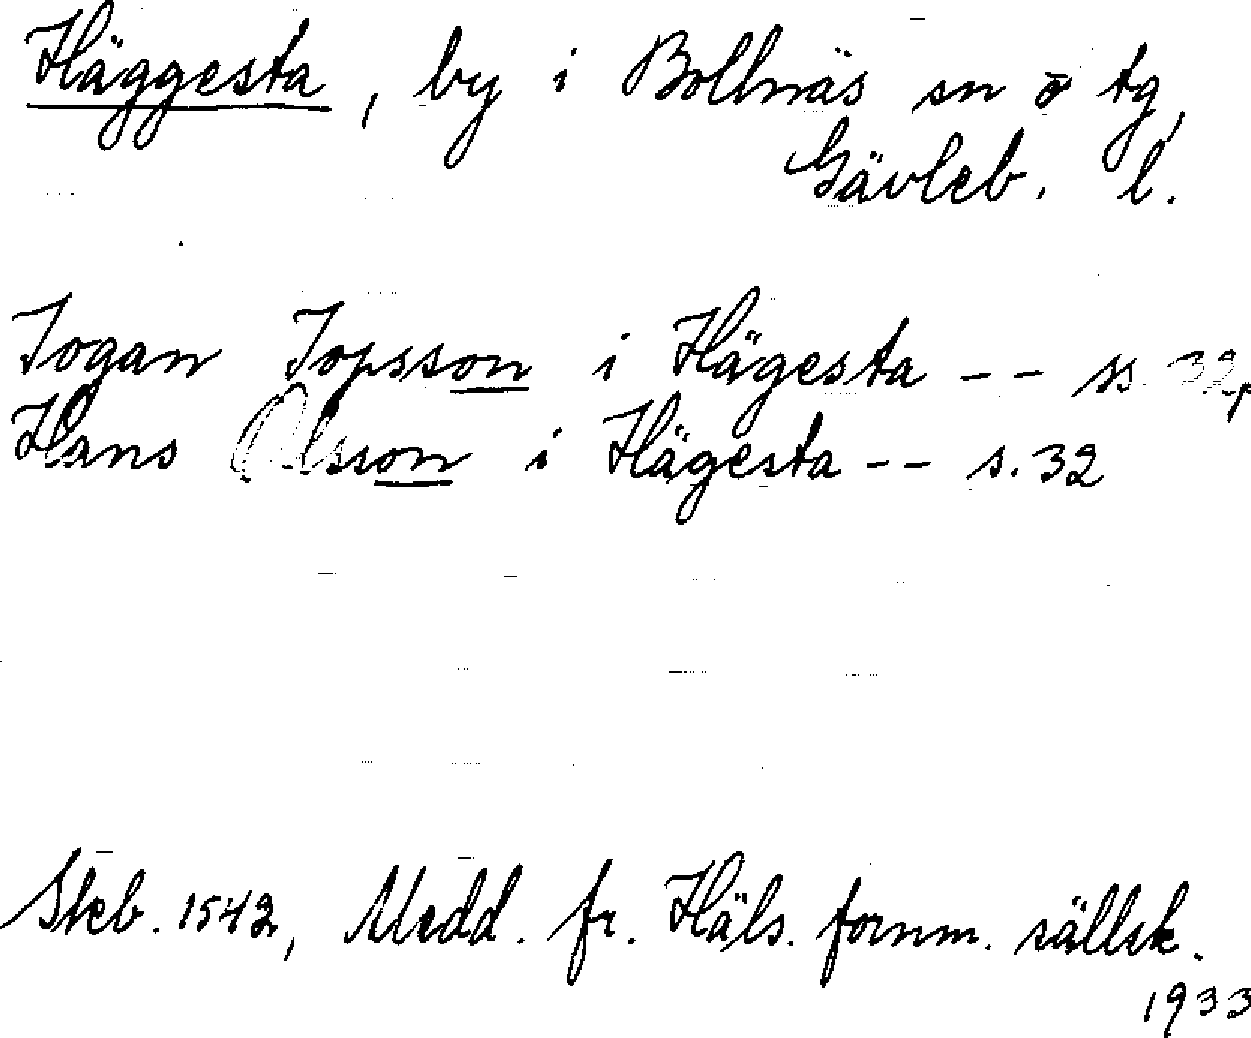 Häggesta, by i Bollnäs sn o tg,
Gävleb. l.
Jogan Jopsson i Hägesta -- ss. 32,
Hans Olsson i Hägesta -- s. 32
Skb. 1542, Medd. fr. Häls. fornm. sällsk.
1933